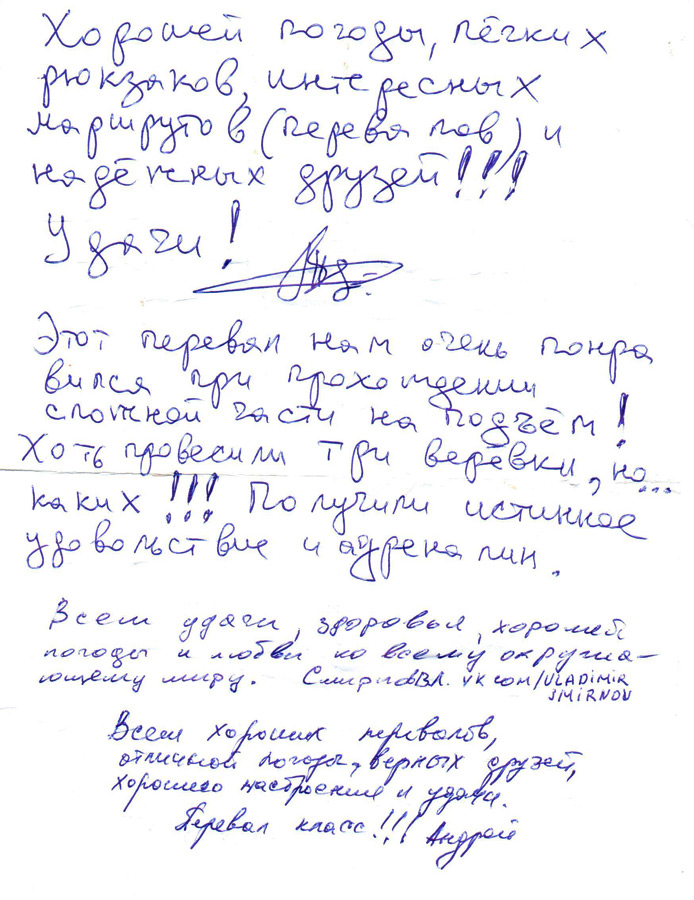 Хорошей погоды, лёгких
рюкзаков, интересных
маршрутов (перевалов) и
надёжных друзей!!!
Удачи!
Этот перевал нам очень понра
вился при прохождении
сложной части на подъём!
Хоть провесили три верёвки, но...
каких!!! Получили истинное
удовольствие и адреналин.
Всем удачи, здоровья, хорошей
погоды и любви ко всему окружа-
ющему миру. Смирнов Вл. VK COM/VLADIMIR
SMIRNOV
Всем хороших перевалов,
отличной погоды, верных друзей,
хорошего настроения и удачи.
Перевал класс!!! Андрей